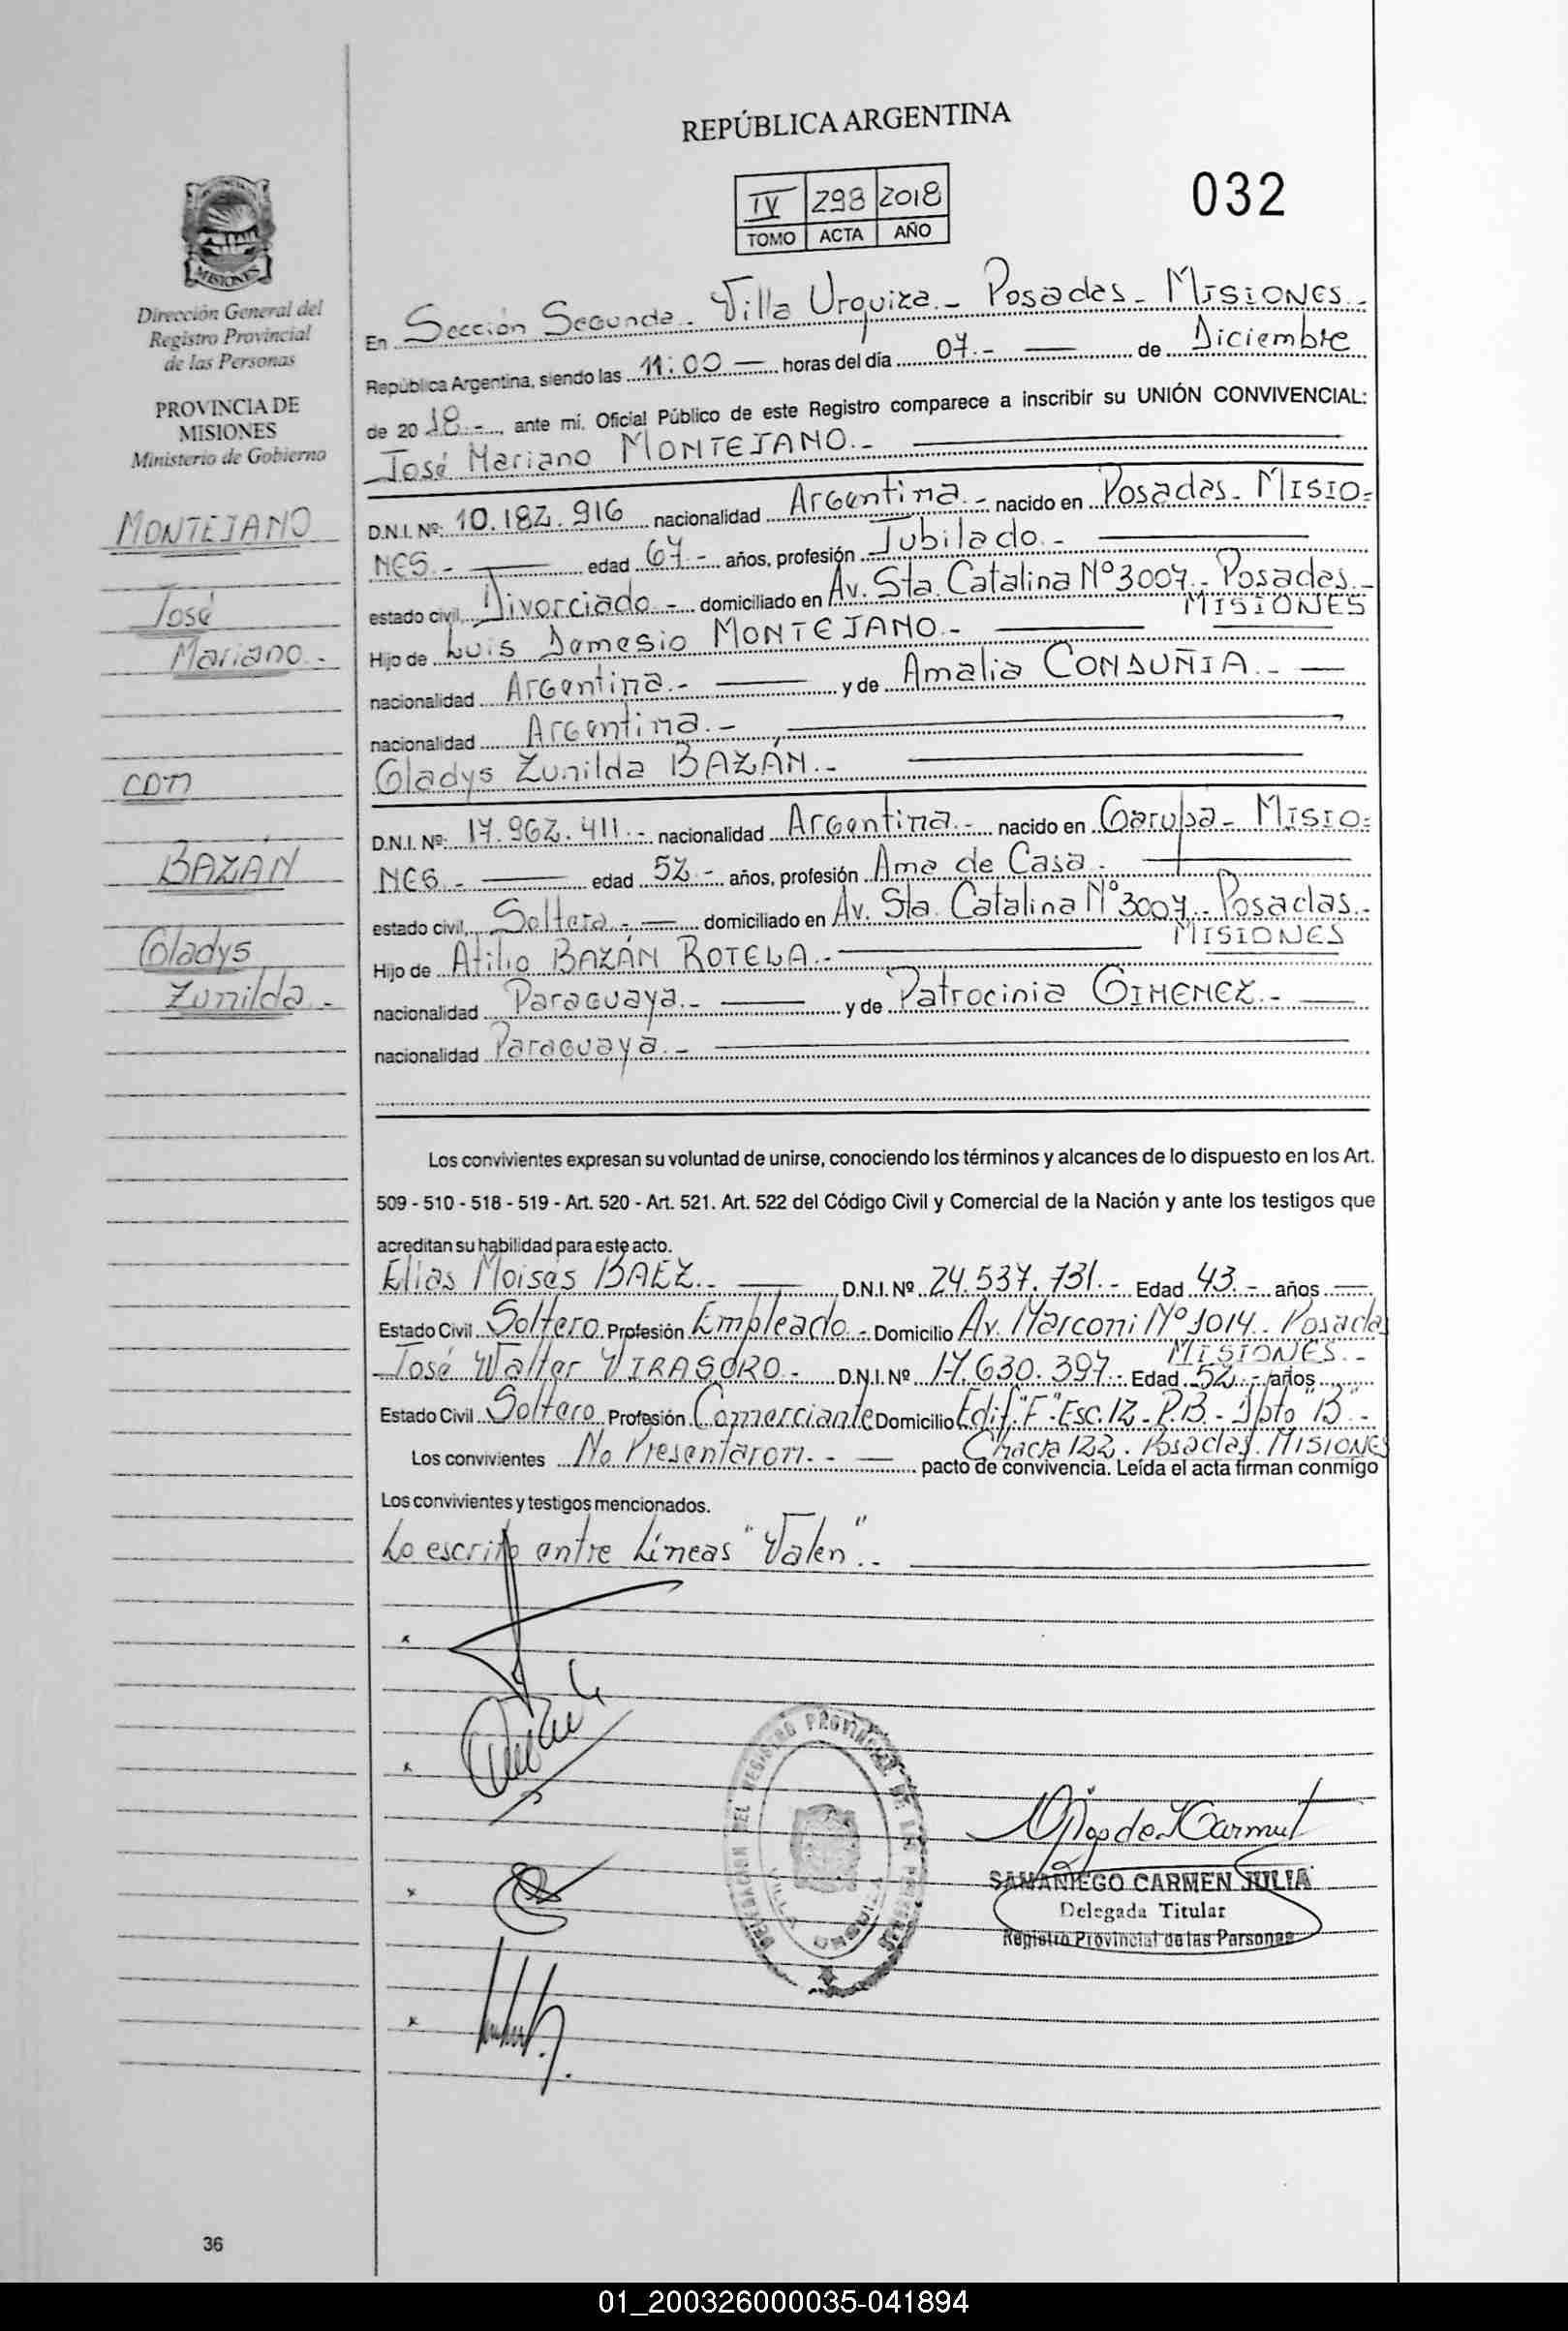 REPÚBLICA ARGENTINA
IV 298 2018
TOMO ACTA AÑO
032
MISIONES
Dirección General del
Registro Provincial
de las Personas
PROVINCIA DE
MISIONES
Ministerio de Gobierno
MONTEJANO
José
Mariano.-
con
BAZÁN
Gladys
Zunilda.-
En Sección Segunda- Villa Urquiza.- Posadas- MISIONES.-
República Argentina, siendo las 11:00 — horas del día 07.- — de Diciembre
de 20 18.-, ante mí, Oficial Público de este Registro comparece a inscribir su UNIÓN CONVIVENCIAL:
José Mariano MONTEJANO.-
D.N.I. Nº: 10.182.916 nacionalidad Argentina.- nacido en Posadas- MISIO=
NES.- — edad 67.- años, profesión Jubilado.-
estado civil, Divorciado.- domiciliado en Av. Sta. Catalina Nº3007.- Posadas.-
MISIONES
Hijo de Luis Demesio MONTEJANO.-
nacionalidad Argentina.- — y de Amalia CONDUÑIA.- —
nacionalidad Argentina.-
Gladys Zunilda BAZÁN.-
D.N.I. Nº: 17.962.411.- nacionalidad Argentina.- nacido en Garupa- MISIO=
NES.- — edad 52.- años, profesión Ama de Casa.-
estado civil, Soltera.- — domiciliado en Av. Sta. Catalina Nº3007.- Posadas.-
MISIONES
Hijo de Atilio BAZÁN ROTELA.-
nacionalidad Paraguaya.- — y de Patrocinia GIMENEZ.- —
nacionalidad Paraguaya.-
Los convivientes expresan su voluntad de unirse, conociendo los términos y alcances de lo dispuesto en los Art.
509 - 510 - 518 - 519 - Art. 520 - Art. 521. Art. 522 del Código Civil y Comercial de la Nación y ante los testigos que
acreditan su habilidad para este acto.
Elias Moises BAEZ.- — D.N.I. Nº 24.537.731.- Edad 43.- años
Estado Civil Soltero Profesión Empleado.- Domicilio Av. Marconi Nº1014- Posadas
MISIONES.-
José Walter VIRASORO.- D.N.I. Nº 17.630.397.- Edad 52.- años
Estado Civil Soltero Profesión Comerciante Domicilio Edif."F"-Esc.12-P.B.-Dpto "B"-
Chacra 122. Posadas. MISIONES
Los convivientes No Presentaron.- — pacto de convivencia. Leída el acta firman conmigo
Los convivientes y testigos mencionados.
Lo escrito entre Líneas "Valen".-
DELEGACION DEL REGISTRO PROVINCIAL DE LAS PERSONAS
VILLA URQUIZA
SAMANIEGO CARMEN JULIA
Delegada Titular
Registro Provincial de las Personas
36
01_200326000035-041894